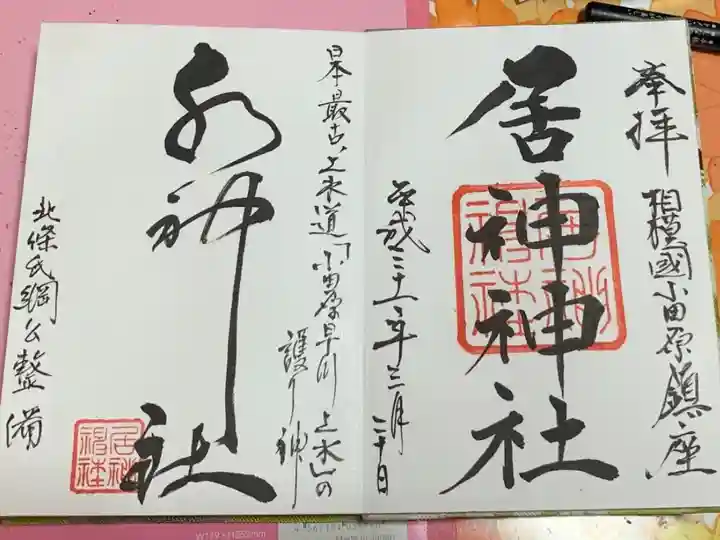 奉拝
相模國小田原鎮座
居神神社
平成三十一年三月
二十日
日本最古、上水道「小田原早川上水」の
護り神
水神社
北條氏綱公整備
居神神社